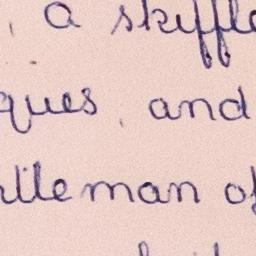 , a skiffle
ques, and
ntleman of